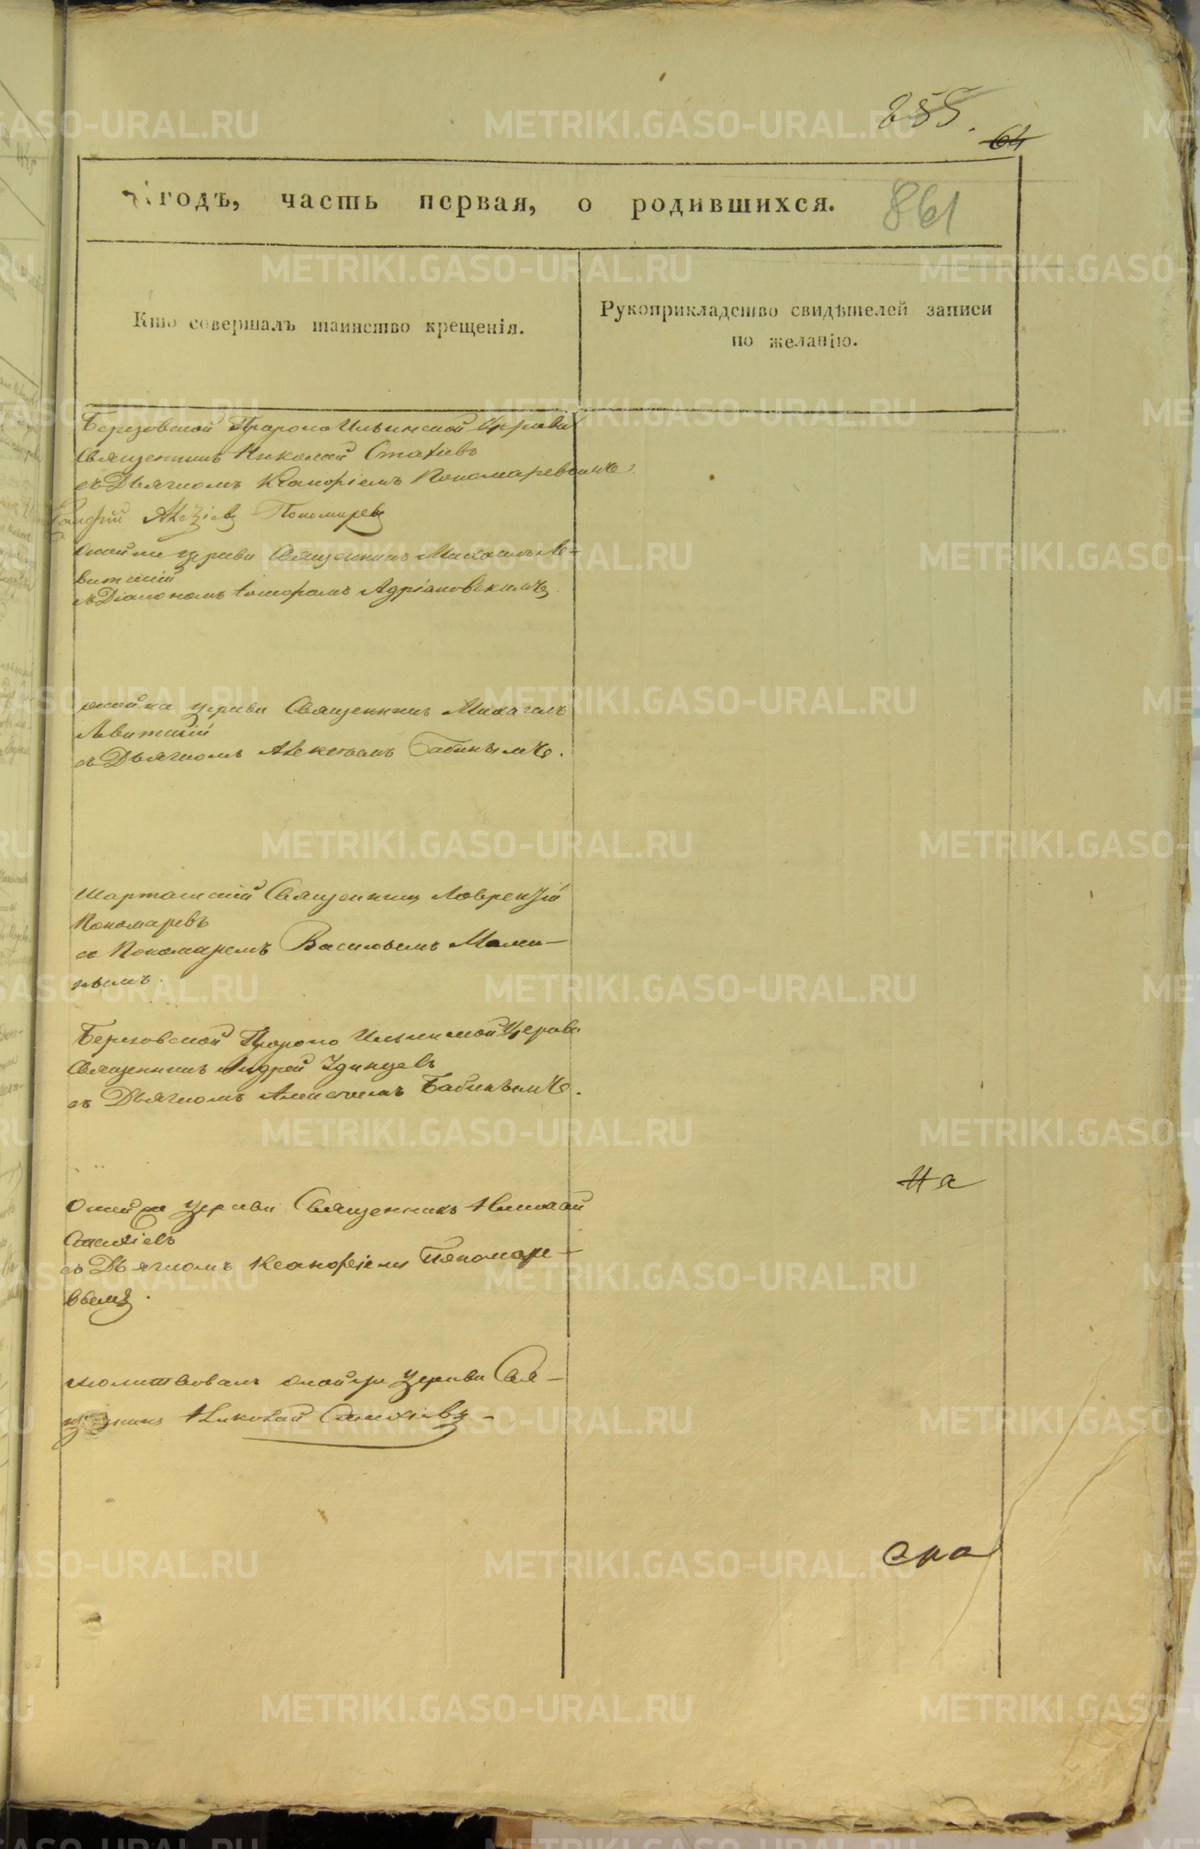 255.
64
годъ, часть первая, о родившихся. 861
Кто совершалъ таинство крещенія.
Рукоприкладство свидѣтелей записи
по желанію.
Березовской Пророко Ильинской Церкви
Священникъ Николай Стахіевъ
съ Дьячкомъ Пономаревымъ
Пономаревъ
церкви Священникъ Михаилъ Ле-
витскій
съ Діакономъ Адріановскимъ
церкви Священникъ Михаилъ
Левитскій
съ Дьячкомъ Алексѣемъ Бабинымъ.
Шарташскій Священникъ Лаврентій
Пономаревъ
съ Пономаремъ Васильемъ Мами-
нымъ.
Березовской Пророко Ильинской Церкви
Священникъ Андрей Удинцевъ
съ Дьячкомъ Алексѣемъ Бабинымъ.
На
церкви Священникъ Николай
Стахіевъ
съ Дьячкомъ Пономаре-
вымъ.
молитвовалъ оной же церкви Свя-
щенникъ Николай Стахіевъ
METRIKI.GASO-URAL.RU